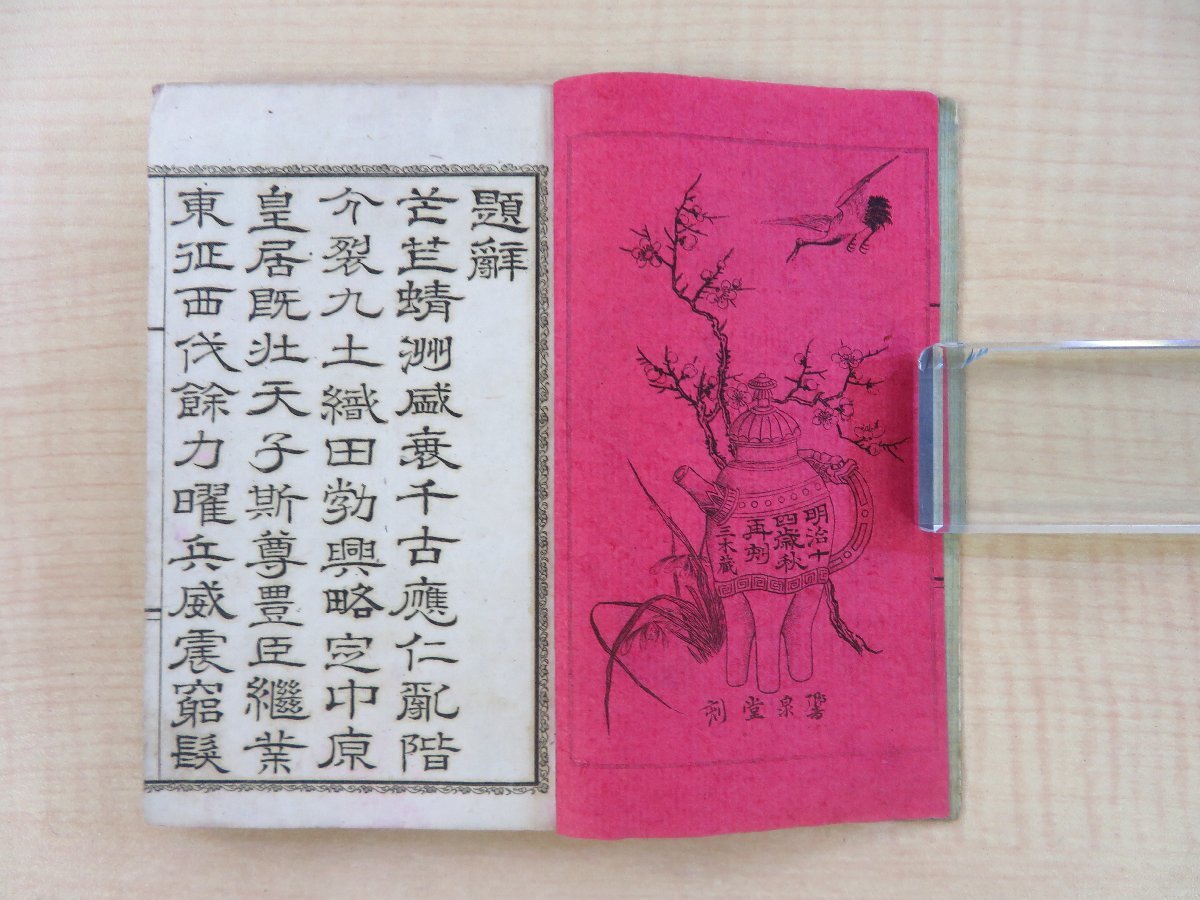 明治十
四歳秋
再刻
三木蔵
響泉堂刻
題辭
芒芒蜻洲盛衰千古應仁亂階
分裂九土織田勃興略定中原
皇居既壯天子斯尊豊臣繼業
東征西伐餘力曜兵威震窮髮